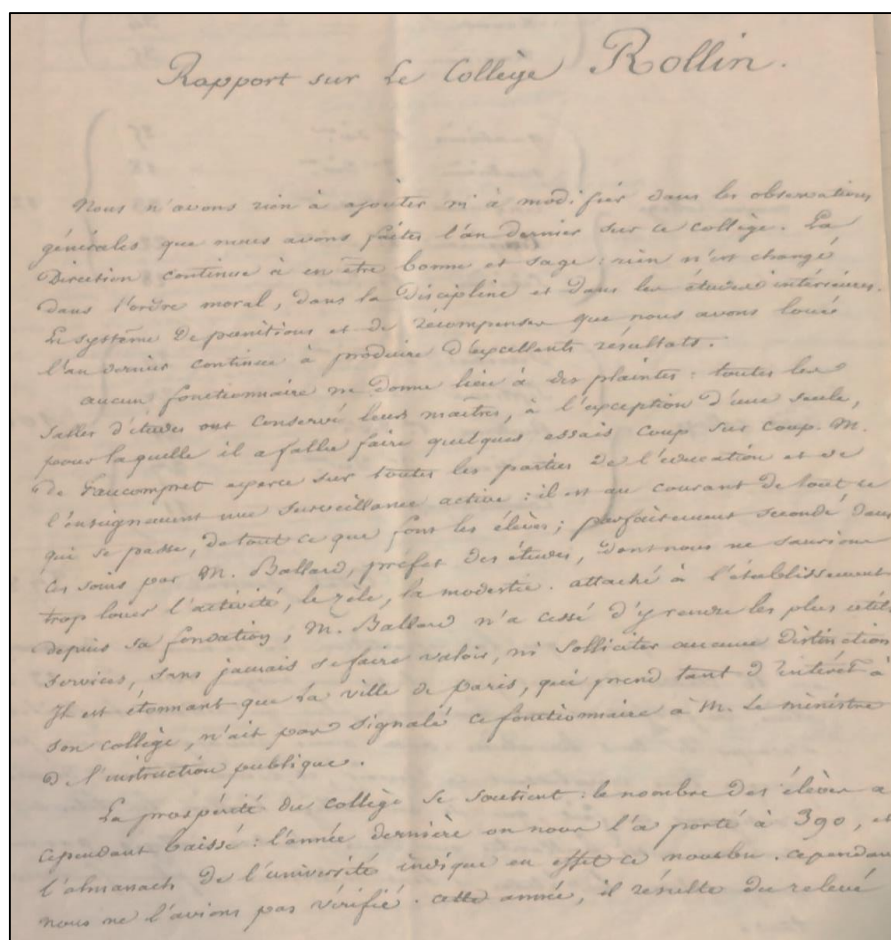 Rapport sur Le Collège Rollin.
Nous n'avons rien à ajouter ni à modifier dans les observations
générales que nous avons faites l'an dernier sur ce collège. La
Direction continue à en être bonne et sage : rien n'est changé
dans l'ordre moral, dans la discipline et dans les études intérieures.
Le système de punitions et de récompenses que nous avons loués
l'an dernier continue à produire d'excellents résultats.
aucun fonctionnaire ne donne lieu à des plaintes : toutes les
salles d'études ont conservé leurs maîtres, à l'exception d'une seule,
pour laquelle il a fallu faire quelques essais coup sur coup. M.
de Faucompret exerce sur toutes les parties de l'éducation et de
l'enseignement une surveillance active : il est au courant de tout ce
qui se passe, de tout ce que font les élèves ; parfaitement secondé dans
ces soins par M. Ballard, préfet des études, dont nous ne saurions
trop louer l'activité, le zèle, la modestie. attaché à l'établissement
depuis sa fondation, M. Ballard n'a cessé d'y rendre les plus utiles
services, sans jamais se faire valoir, ni solliciter aucune distinction
Il est étonnant que La ville de paris, qui prend tant d'intérêt à
son collège, n'ait pas signalé ce fonctionnaire à M. Le ministre
de l'instruction publique.
La prospérité du collège se soutient : le nombre des élèves a
cependant baissé : l'année dernière on nous l'a porté à 390, et
l'almanach de l'université indique en effet ce nombre. cependant
nous ne l'avions pas vérifié. cette année, il résulte du relevé